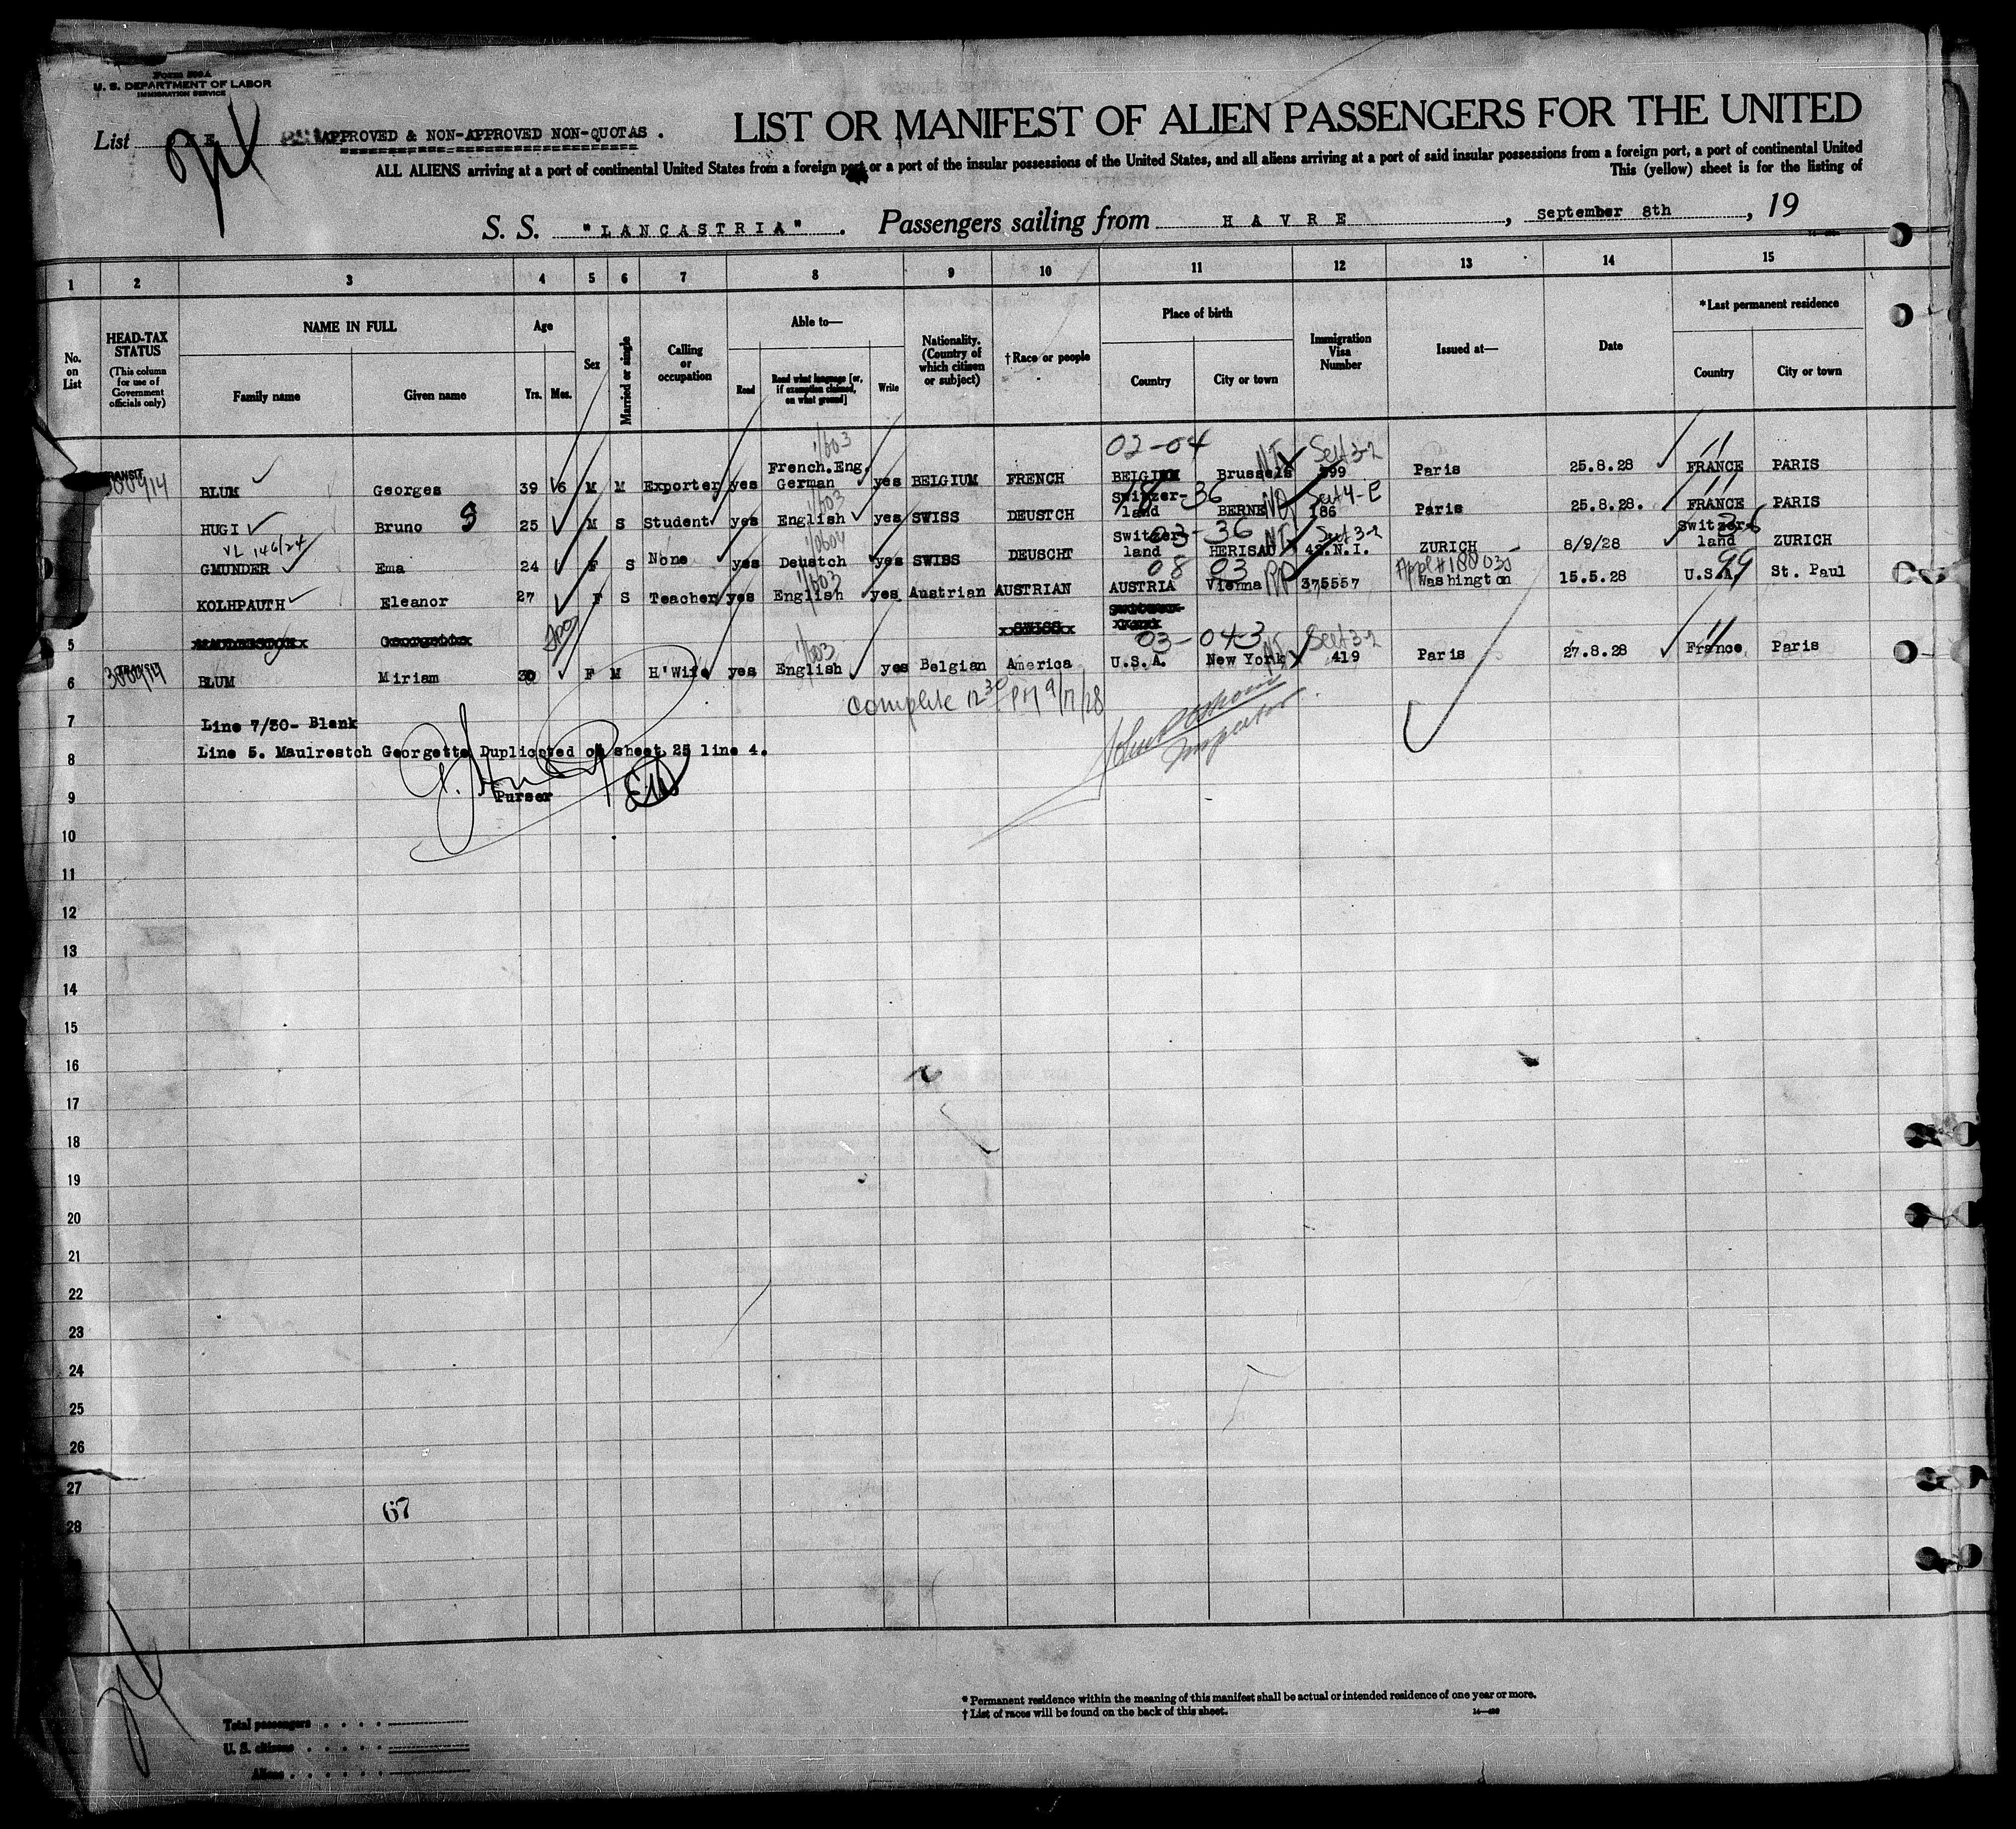 Form 500 A
U. S. DEPARTMENT OF LABOR
IMMIGRATION SERVICE
List
APPROVED & NON-APPROVED NON-QUOTAS .
LIST OR MANIFEST OF ALIEN PASSENGERS FOR THE UNITED
ALL ALIENS arriving at a port of continental United States from a foreign port or a port of the insular possessions of the United States, and all aliens arriving at a port of said insular possessions from a foreign port, a port of continental United
This (yellow) sheet is for the listing of
S. S. "LANCASTRIA" . Passengers sailing from HAVRE , September 8th , 19
1 2 3 4 5 6 7 8 9 10 11 12 13 14 15
No. on List
HEAD-TAX STATUS (This column for use of Government officials only)
NAME IN FULL Family name Given name
Age Yrs. Mos.
Sex
Married or single
Calling or occupation
Able to— Read Read what language [or, if exemption claimed, on what ground] Write
Nationality. (Country of which citizen or subject)
† Race or people
Place of birth Country City or town
Immigration Visa Number
Issued at—
Date
*Last permanent residence Country City or town
1/603 02-04 NI Sect 3-2 11
TRANSIT BLUM Georges 39 6 M M Exporter yes French.Eng. German yes BELGIUM FRENCH BELGIUM Brussels 399 Paris 25.8.28 FRANCE PARIS
1/603 18 36 NQ Sect 4-E 11
HUGI Bruno 25 M S Student yes English yes SWISS DEUSTCH Switzer-land BERNE 186 Paris 25.8.28. FRANCE PARIS
VL 146/24 03-36 NI Sect 3-2 36
GMUNDER Ema 24 F S None yes Deustch yes SWISS DEUSCHT Switzer-land HERISAU 42.N.I. ZURICH 8/9/28 Switzer-land ZURICH
1/603 08 03 RP 99
KOLHPAUTH Eleanor 27 F S Teacher yes English yes Austrian AUSTRIAN AUSTRIA Vienna 375557 Washington 15.5.28 U.S.A. St. Paul
5 SWISS
1/603 03-04-3 NI Sect 3-2 11
6 BLUM Miriam 30 F M H'Wife yes English yes Belgian America U.S.A. New York 419 Paris 27.8.28 France Paris
Complete 12 30 PM 9/17/28
7 Line 7/30- Blank
8 Line 5. Maulrestch Georgette Duplicated on sheet 25 line 4.
Inspector.
9 Purser
10
11
12
13
14
15
16
17
18
19
20
21
22
23
24
25
26
27
67
28
* Permanent residence within the meaning of this manifest shall be actual or intended residence of one year or more.
† List of races will be found on the back of this sheet.
Total passengers . . . .
U. S. citizens . . . . .
Aliens . . . . . .